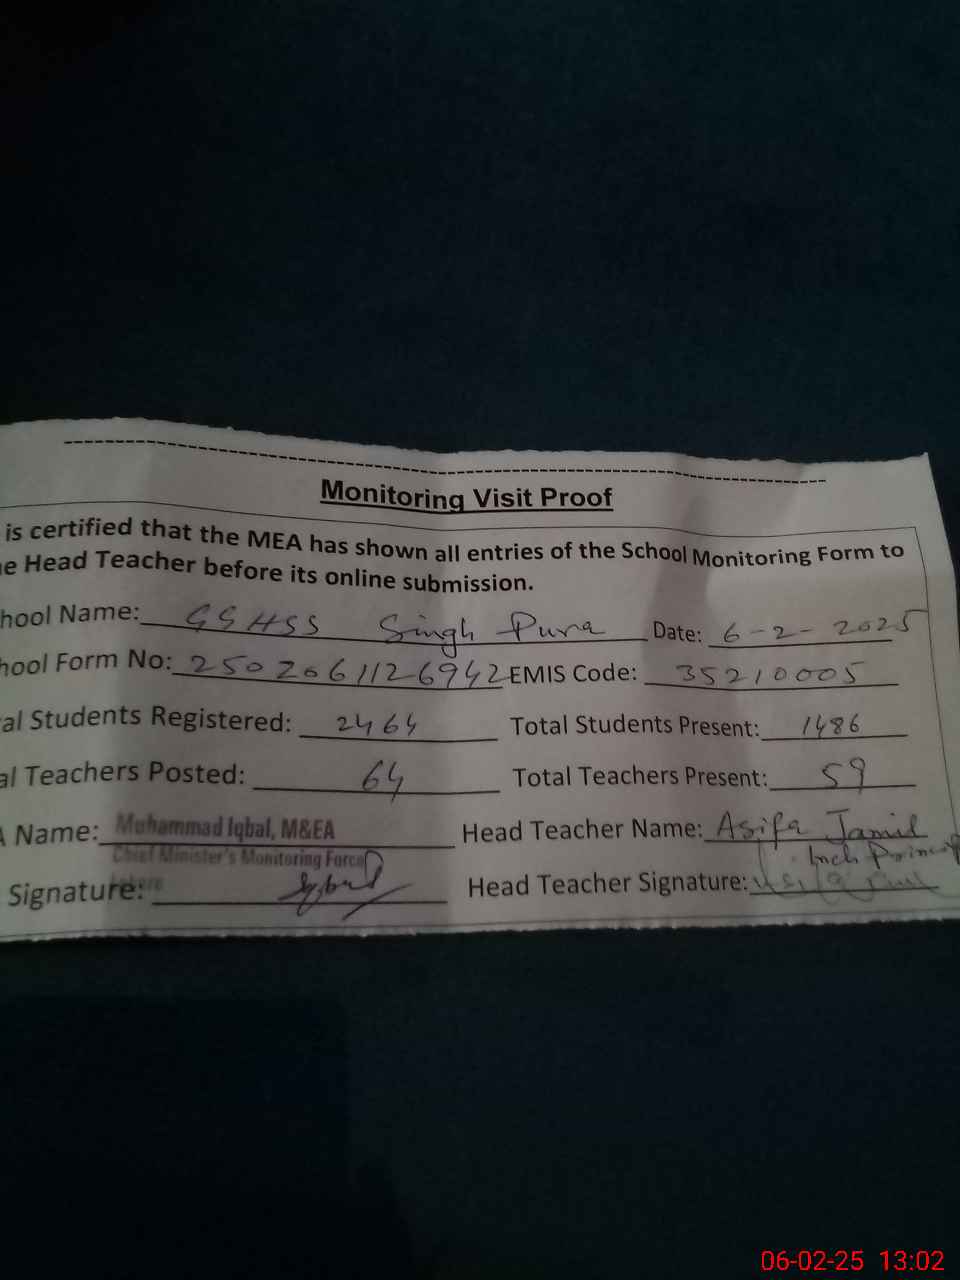 Monitoring Visit Proof
is certified that the MEA has shown all entries of the School Monitoring Form to
e Head Teacher before its online submission.
hool Name: GSHSS Singh Pura Date: 6-2-2025
hool Form No: 25020611126942 EMIS Code: 35210005
al Students Registered: 2464 Total Students Present: 1486
al Teachers Posted: 64 Total Teachers Present: 59
A Name: Muhammad Iqbal, M&EA Head Teacher Name: Asifa Jamil
Chief Minister's Monitoring Force Inch Princip
Signature: Head Teacher Signature:
06-02-25 13:02